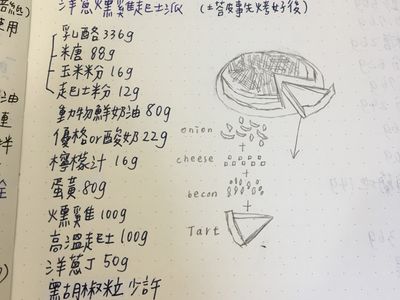 洋蔥燻雞起士派 (塔皮事先烤好後)
乳酪 336g
米糖 88g
玉米粉 16g
起士粉 12g
動物鮮奶油 80g
優格or酸奶 22g
檸檬汁 16g
蛋黃 80g
燻雞 100g
高溫起士 100g
洋蔥丁 50g
黑胡椒粒 少許
onion
+
cheese
+
becon
+
Tart
使用
油
連
拌